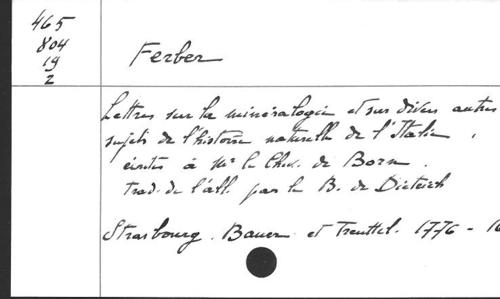 465
804
19
2
Ferber
Lettres sur la minéralogie et sur divers autres
sujets de l'histoire naturelle de l'Italie,
écrites à Mr le Chev. de Born.
trad. de l'all. par le B. de Dietrich
Strasbourg. Bauer et Treuttel. 1776 -